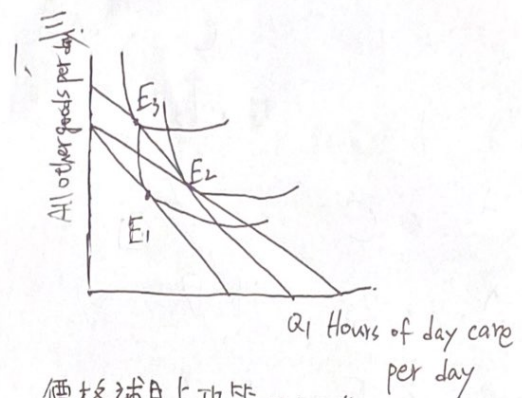 三
1、
All other goods per day.
E3
E2
E1
Q1 Hours of day care
per day